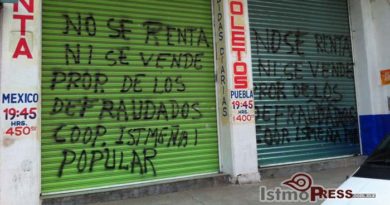 NTA
MÉXICO
19:45
HRS.
450
NO SE RENTA
NI SE VENDE
PROP. DE LOS
DEFRAUDADOS
COOP. ISTMEÑA
POPULAR
DAS DIARIAS
OLETOS
PUEBLA
19:45
HRS.
$400
NO SE RENTA
NI SE VENDE
PROP. DE LOS
DEFRAUDADOS
ISTMOPRESS.COM.MX